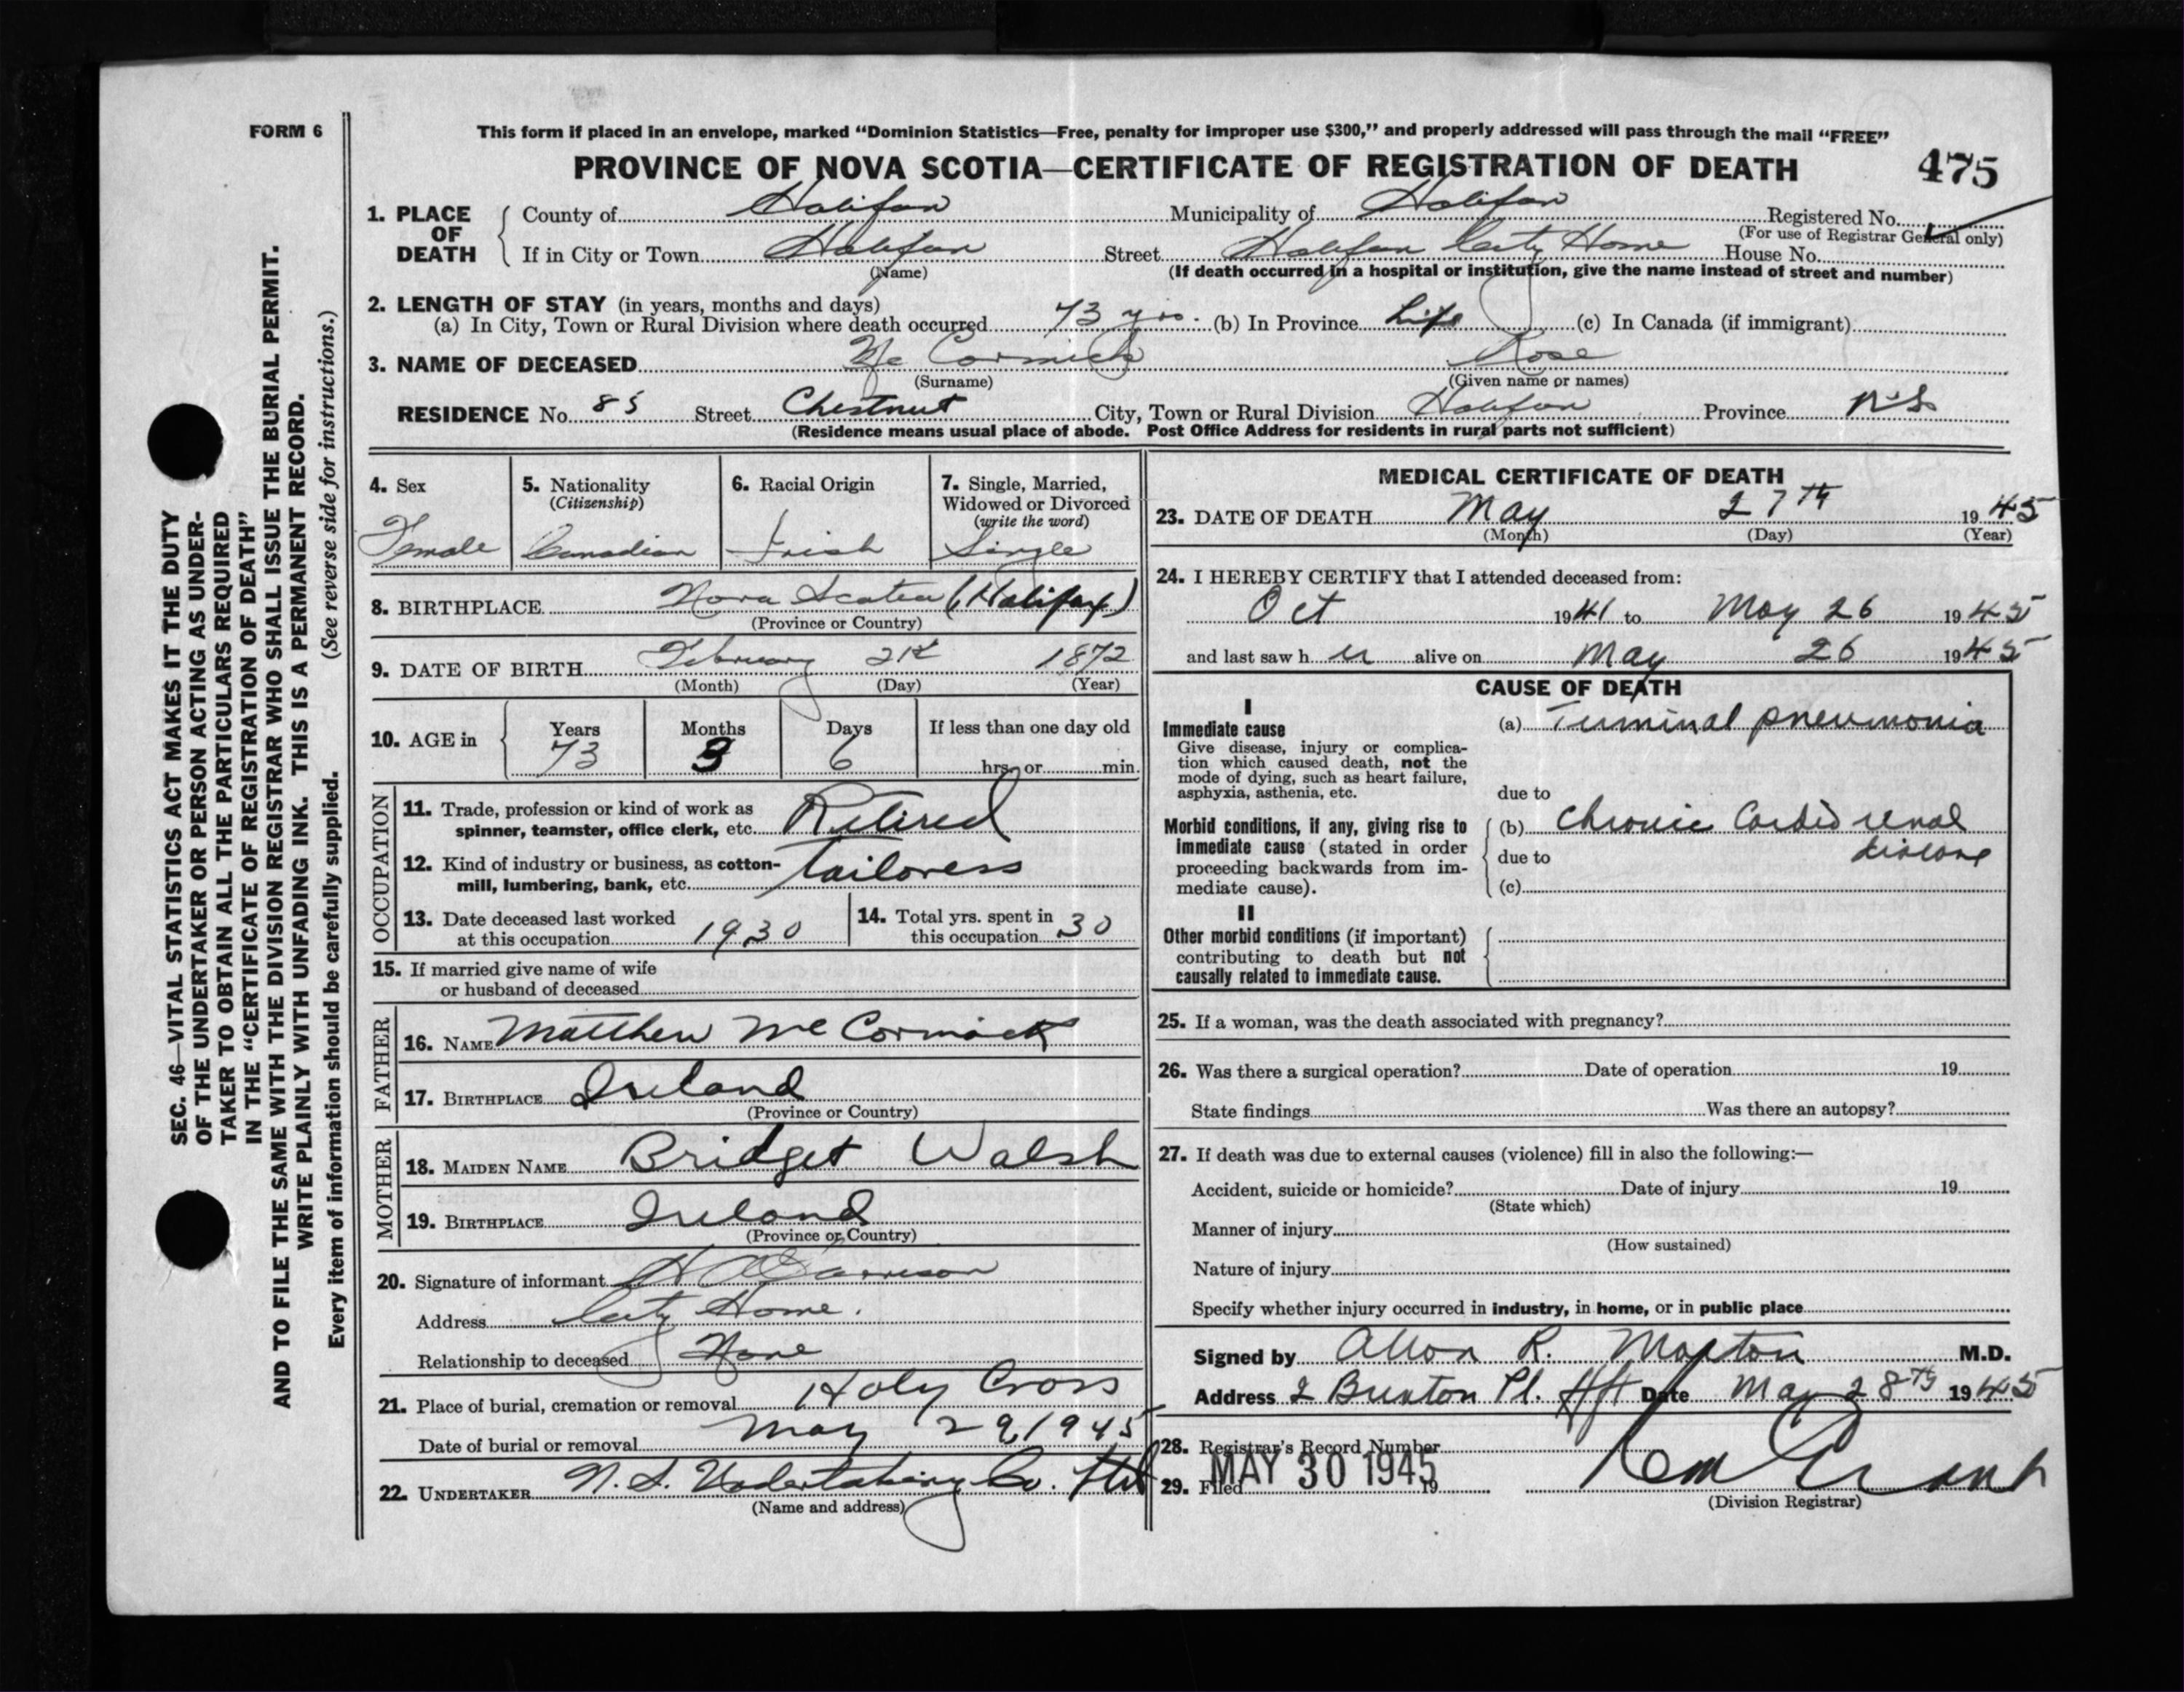 FORM 6
This form if placed in an envelope, marked “Dominion Statistics—Free, penalty for improper use $300,” and properly addressed will pass through the mail “FREE”
PROVINCE OF NOVA SCOTIA—CERTIFICATE OF REGISTRATION OF DEATH 475
1. PLACE OF DEATH
County of Halifax Municipality of Halifax Registered No.
(For use of Registrar General only)
If in City or Town Halifax Street Halifax City Home House No.
(Name) (If death occurred in a hospital or institution, give the name instead of street and number)
2. LENGTH OF STAY (in years, months and days)
(a) In City, Town or Rural Division where death occurred 73 yrs. (b) In Province Life (c) In Canada (if immigrant)
3. NAME OF DECEASED Mc Cormick Rose
(Surname) (Given name or names)
RESIDENCE No. 85 Street Chestnut City, Town or Rural Division Halifax Province N.S.
(Residence means usual place of abode. Post Office Address for residents in rural parts not sufficient)
4. Sex
Female
5. Nationality
(Citizenship)
Canadian
6. Racial Origin
Irish
7. Single, Married,
Widowed or Divorced
(write the word)
Single
8. BIRTHPLACE Nova Scotia (Halifax)
(Province or Country)
9. DATE OF BIRTH February 21st 1872
(Month) (Day) (Year)
10. AGE in
Years Months Days If less than one day old
73 3 6 hrs. or min.
OCCUPATION
11. Trade, profession or kind of work as
spinner, teamster, office clerk, etc. Retired
12. Kind of industry or business, as cotton-
mill, lumbering, bank, etc. Tailoress
13. Date deceased last worked
at this occupation 1930
14. Total yrs. spent in
this occupation 30
15. If married give name of wife
or husband of deceased
FATHER
16. NAME Matthew Mc Cormack
17. BIRTHPLACE Ireland
(Province or Country)
MOTHER
18. MAIDEN NAME Bridget Walsh
19. BIRTHPLACE Ireland
(Province or Country)
20. Signature of informant
Address City Home.
Relationship to deceased None
21. Place of burial, cremation or removal Holy Cross
Date of burial or removal May 29, 1945
22. UNDERTAKER N. S. Undertaking Co.
(Name and address)
MEDICAL CERTIFICATE OF DEATH
23. DATE OF DEATH May 27th 1945
(Month) (Day) (Year)
24. I HEREBY CERTIFY that I attended deceased from:
Oct 1941 to May 26 1945
and last saw h er alive on May 26 1945
CAUSE OF DEATH
I
Immediate cause
Give disease, injury or complica-
tion which caused death, not the
mode of dying, such as heart failure,
asphyxia, asthenia, etc.
(a) Terminal pneumonia
due to
Morbid conditions, if any, giving rise to
immediate cause (stated in order
proceeding backwards from im-
mediate cause).
(b) Chronic Cardio renal
due to disease
(c)
II
Other morbid conditions (if important)
contributing to death but not
causally related to immediate cause.
25. If a woman, was the death associated with pregnancy?
26. Was there a surgical operation? Date of operation 19
State findings Was there an autopsy?
27. If death was due to external causes (violence) fill in also the following:—
Accident, suicide or homicide? Date of injury 19
(State which)
Manner of injury
(How sustained)
Nature of injury
Specify whether injury occurred in industry, in home, or in public place
Signed by Allan R. Morton M.D.
Address 2 Brenton Pl. Hfx Date May 28th 1945
28. Registrar's Record Number
29. Filed MAY 30 1945 19
(Division Registrar)
SEC. 46—VITAL STATISTICS ACT MAKES IT THE DUTY
OF THE UNDERTAKER OR PERSON ACTING AS UNDER-
TAKER TO OBTAIN ALL THE PARTICULARS REQUIRED
IN THE “CERTIFICATE OF REGISTRATION OF DEATH”
AND TO FILE THE SAME WITH THE DIVISION REGISTRAR WHO SHALL ISSUE THE BURIAL PERMIT.
WRITE PLAINLY WITH UNFADING INK. THIS IS A PERMANENT RECORD.
Every item of information should be carefully supplied. (See reverse side for instructions.)